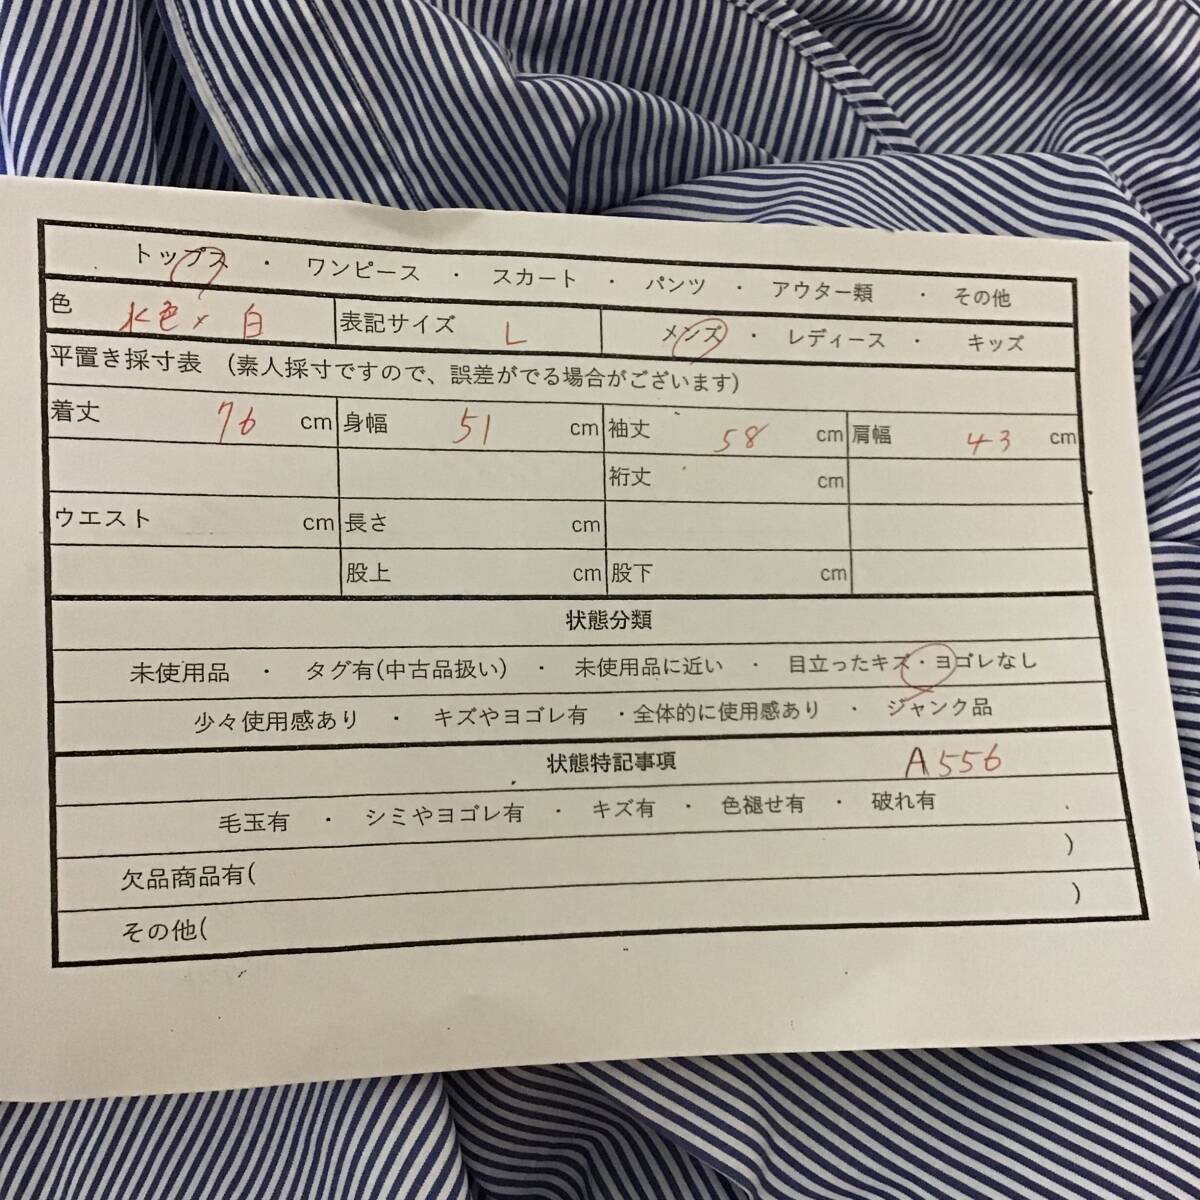 トップス ・ ワンピース ・ スカート ・ パンツ ・ アウター類 ・ その他
色 水色×白 表記サイズ L メンズ ・ レディース ・ キッズ
平置き採寸表 (素人採寸ですので、誤差がでる場合がございます)
着丈 76 cm 身幅 51 cm 袖丈 58 cm 肩幅 43 cm
裄丈 cm
ウエスト cm 長さ cm
股上 cm 股下 cm
状態分類
未使用品 ・ タグ有(中古品扱い) ・ 未使用品に近い ・ 目立ったキズ・ヨゴレなし
少々使用感あり ・ キズやヨゴレ有 ・全体的に使用感あり ・ ジャンク品
状態特記事項 A556
毛玉有 ・ シミやヨゴレ有 ・ キズ有 ・ 色褪せ有 ・ 破れ有
欠品商品有( )
その他( )